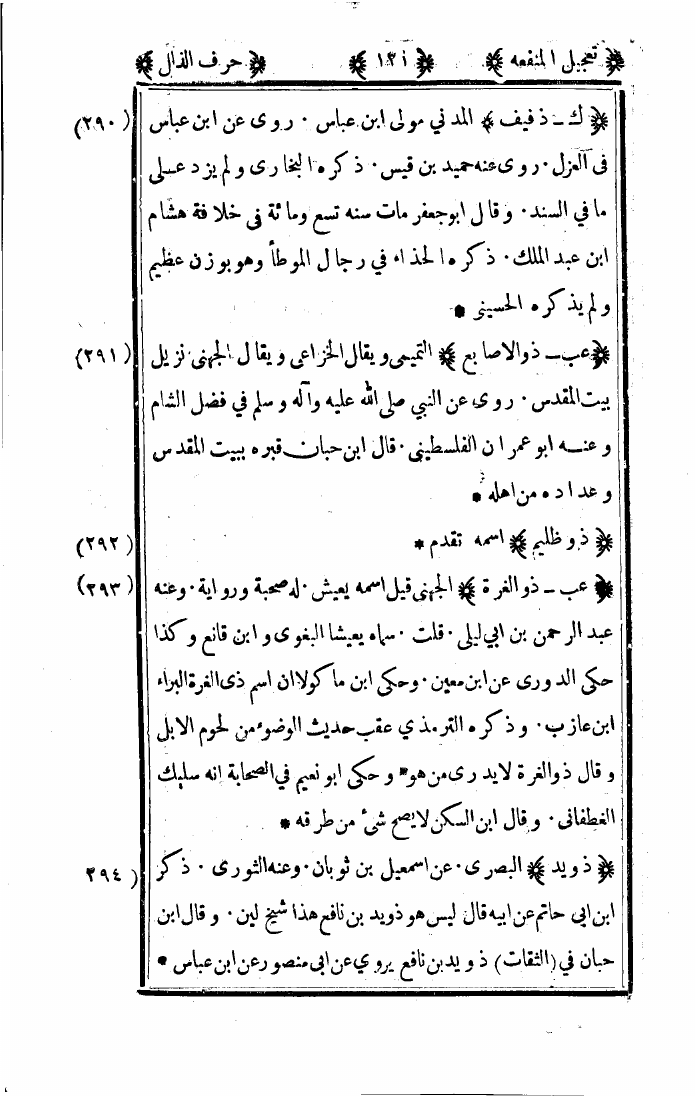 ﴿ تعجيل المنفعه ﴾ ﴿ ١٢١ ﴾ ﴿ حرف الذال ﴾
﴿ ك ـ ذفيف ﴾ المدني مولى ابن عباس · روى عن ابن عباس (٢٩٠)
فى العزل · روى عنه حميد بن قيس · ذكره البخارى ولم يزد على
ما في السند · وقال ابوجعفر مات سنه تسع ومائة فى خلافة هشام
ابن عبد الملك · ذكره الحذاء في رجال الموطأ وهو بوزن عظيم
ولم يذكره الحسينى *
﴿ عب ـ ذوالاصابع ﴾ التميمى ويقال الخزاعى ويقال الجهنى نزيل (٢٩١)
بيت المقدس · روى عن النبي صلى الله عليه وآله وسلم في فضل الشام
وعنه ابو عمران الفلسطينى · قال ابن حبان قبره ببيت المقدس
وعداده من اهله *
﴿ ذوظليم ﴾ اسمه تقدم * (٢٩٢)
﴿ عب ـ ذوالغرة ﴾ الجهنى قيل اسمه يعيش · له صحبة ورواية · وعنه (٢٩٣)
عبد الرحمن بن ابي ليلى · قلت · سماه يعيشا البغوى وابن قانع وكذا
حكى الدورى عن ابن معين · وحكى ابن ماكولا ان اسم ذى الغرة البراء
ابن عازب · وذكره الترمذي عقب حديث الوضوء من لحوم الابل
وقال ذوالغرة لايدرى من هو * وحكى ابو نعيم في الصحابة انه سليك
الغطفانى · وقال ابن السكن لايصح شئ من طرقه *
﴿ ذويد ﴾ البصرى · عن اسمعيل بن ثوبان · وعنه الثورى · ذكر (٢٩٤
ابن ابى حاتم عن ابيه قال ليس هو ذويد بن نافع هذا شيخ لين · وقال ابن
حبان في (الثقات) ذويد بن نافع يروي عن ابى منصور عن ابن عباس *